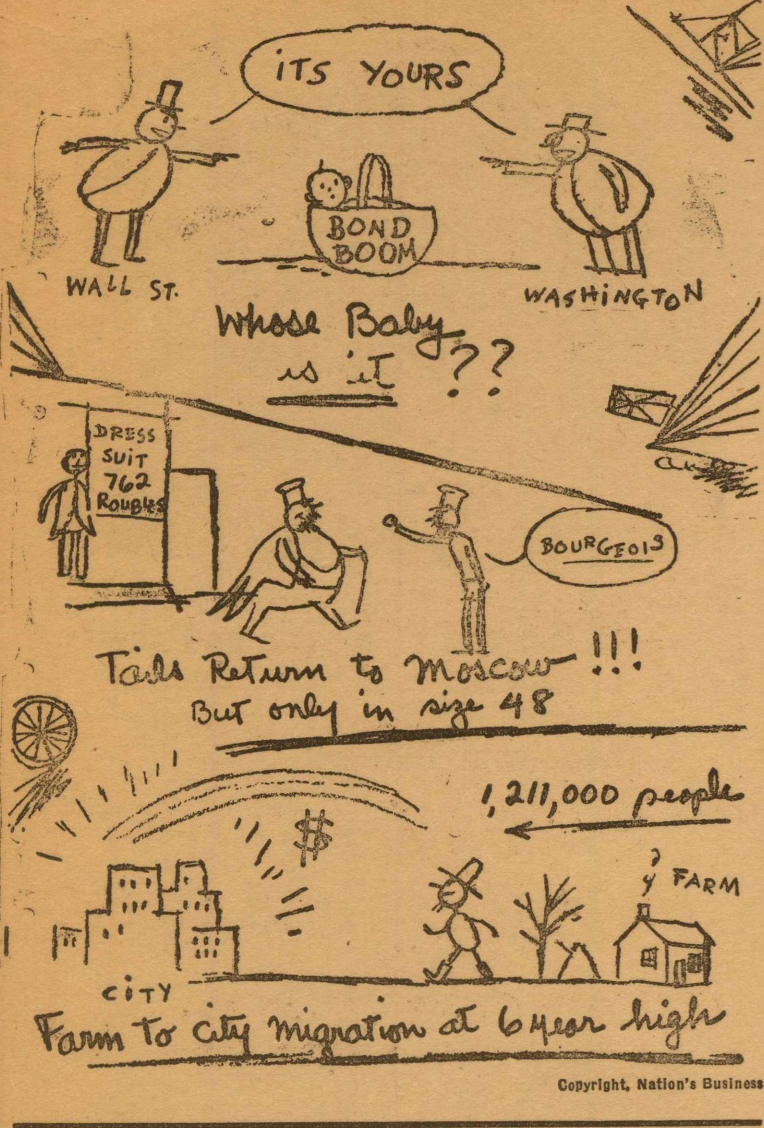 iTS YOURS
BOND
BOOM
WALL ST.
WASHINGTON
Whose Baby
is it ??
DRESS
SUIT
762
ROUBLES
BOURGEOIS
Tails Return to Moscow !!!
But only in size 48
1,211,000 people
$
FARM
CiTY
Farm To City migration at 6 year high
Copyright, Nation's Business